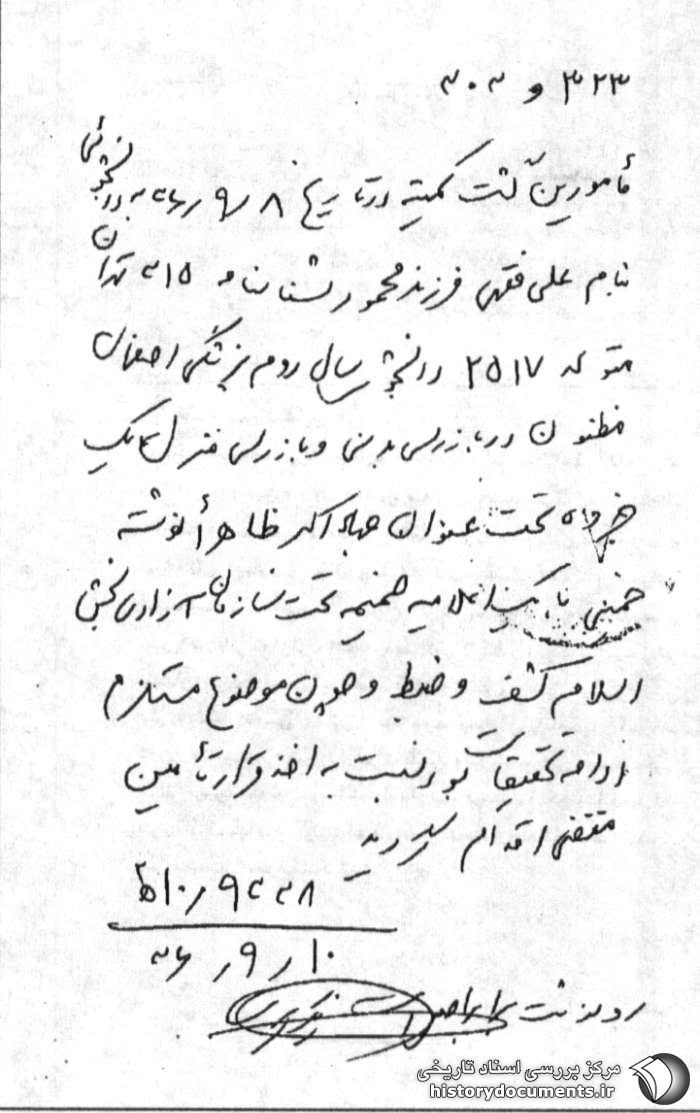 ۳۲۳ و ۳۰۲
مأمورین گشت کمیته در تاریخ ۸ / ۹ / ۳۶ به دانشجوئی
بنام علی فقهی فرزند محمود شناسنامه ۳۱۵ تهران
متولد ۲۵۱۷ دانشجو سال دوم پزشکی اصفهان
مظنون در بازرسی بدنی و بازرسی منزل یک
جزوه تحت عنوان جهاد اکبر ظاهراً نوشته
خمینی با یک اعلامیه ضمیمه تحت سازمان آزادی بخش
اسلام کشف و ضبط و چون موضوع مستلزم
ادامه تحقیقات بود نسبت به اخذ قرار تأمین
مقتضی اقدام گردید
۱۰ / ۹ / ۳۶
رونوشت
مرکز بررسی اسناد تاریخی
historydocuments.ir